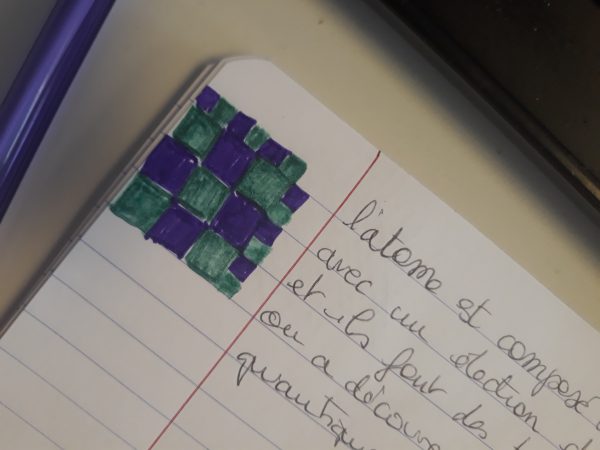 l'atome est composé
avec un électron
et ils font des
on a découve
quantique